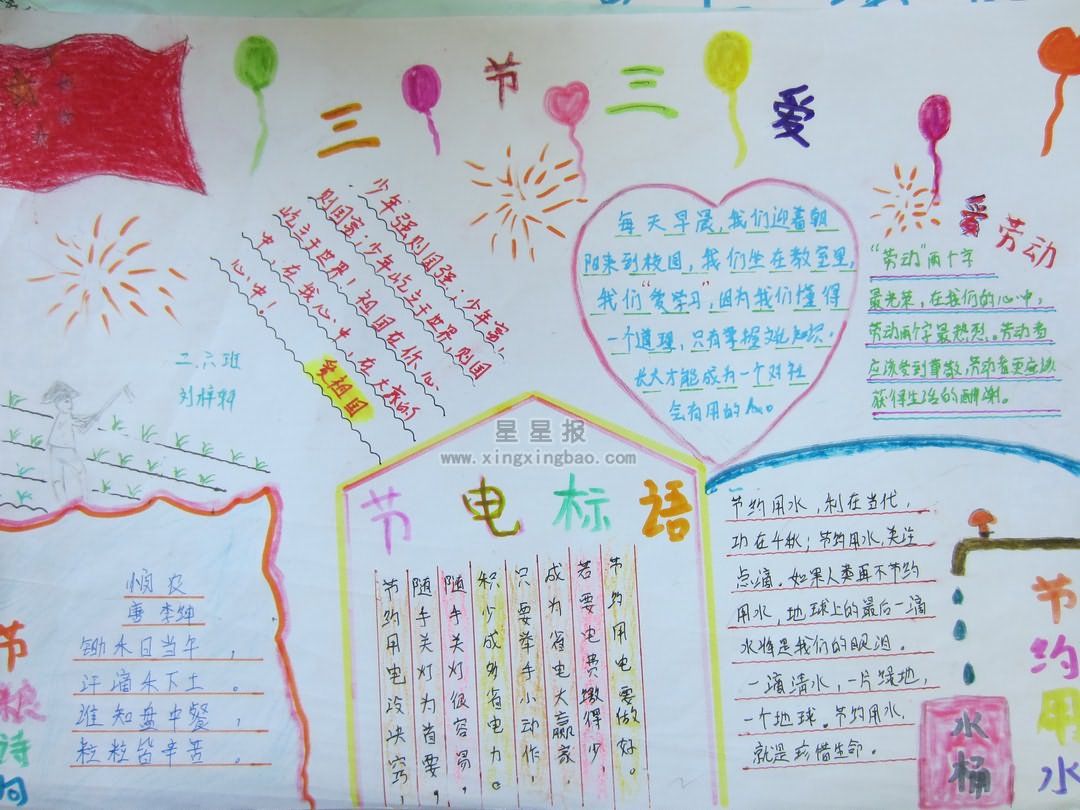 三节三爱
少年强则国强；少年富，
则国富；少年屹立于世界则国
屹立于世界！祖国在你心
中，在我心中，在大家的
心中！
爱祖国
每天早晨，我们迎着朝
阳来到校园，我们坐在教室里，
我们“爱学习”，因为我们懂得
一个道理，只有掌握文化知识，
长大才能成为一个对社
会有用的人。
爱劳动
“劳动”两个字
最光荣，在我们的心中，
劳动两个字最热烈。劳动者
应该受到尊敬，劳动者更应该
获得生活的酬谢。
二.六班
刘梓朝
星星报
www.xingxingbao.com
节电标语
节约用电要做好。
若要电费缴得少，
成为省电大赢家，
只要举手小动作，
积少成多省电力。
随手关灯很容易，
随手关灯为首要，
节约用电没诀窍，
节粮诗句
悯农
唐 李绅
锄禾日当午，
汗滴禾下土。
谁知盘中餐，
粒粒皆辛苦。
节约用水，利在当代，
功在千秋；节约用水，关注
点滴。如果人类再不节约
用水，地球上的最后一滴
水将是我们的眼泪。
一滴清水，一片绿地，
一个地球。节约用水，
就是珍惜生命。
水桶
节约用水